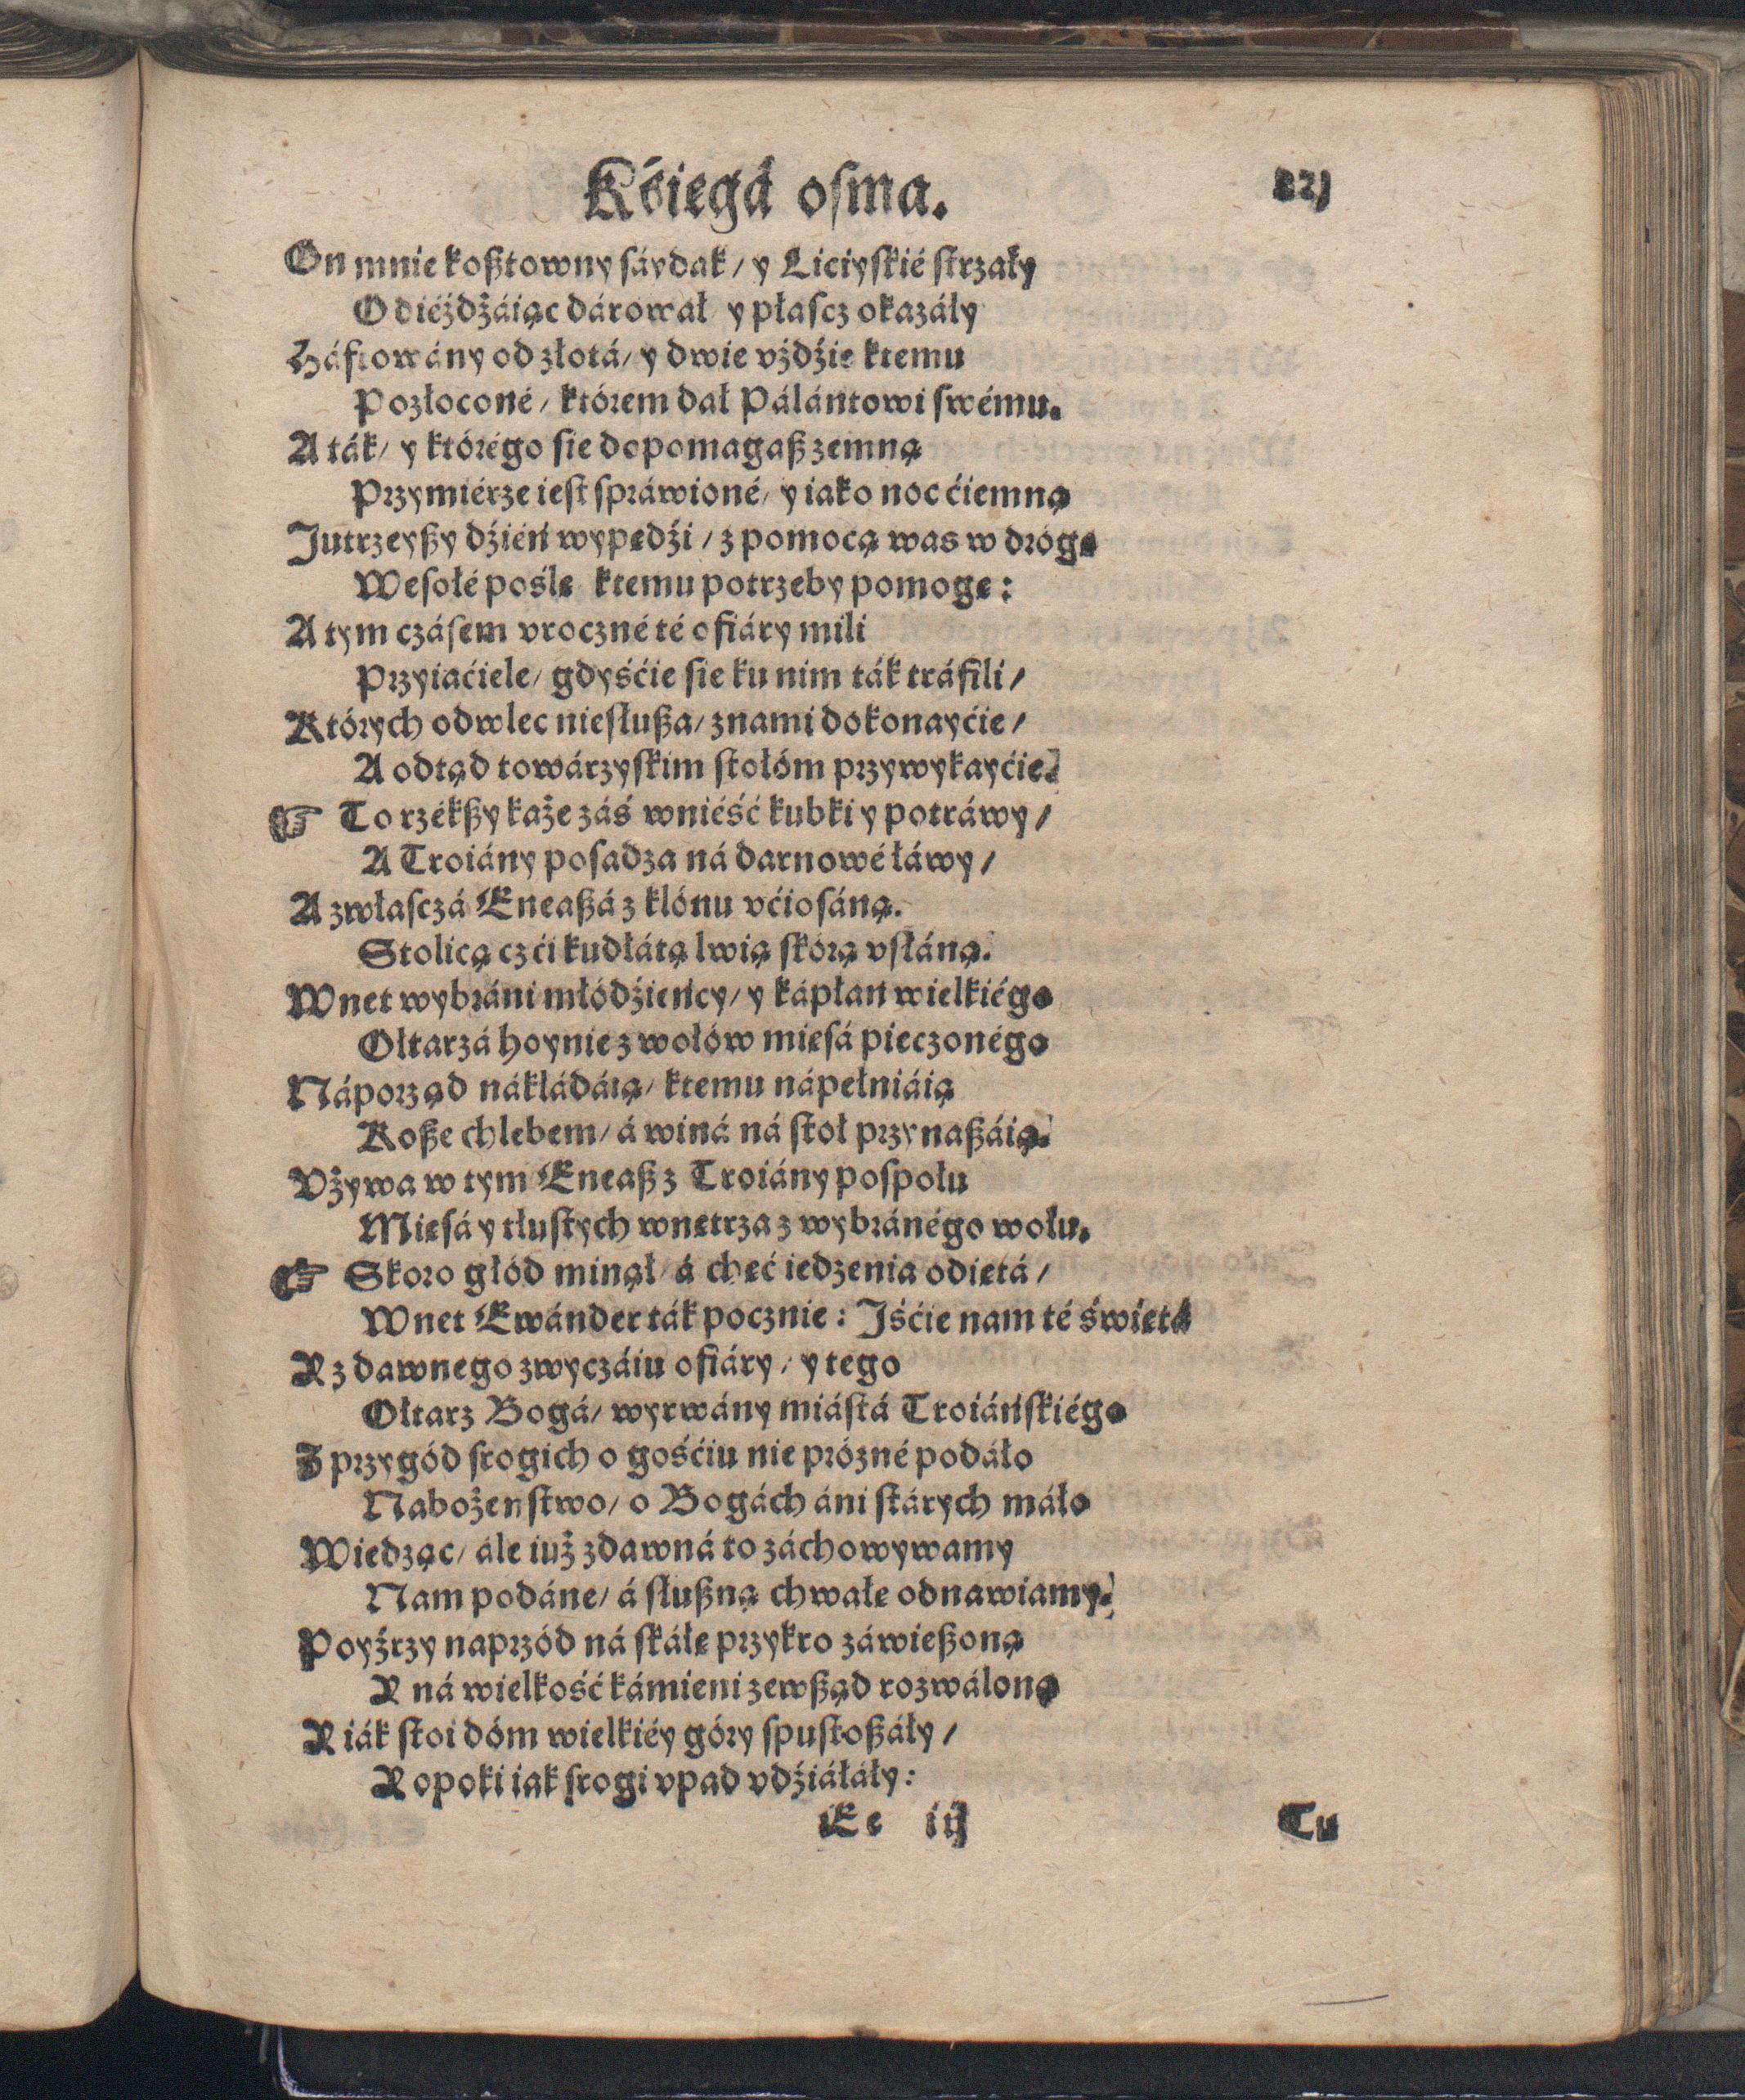 Kśięgá oſma.
On mnie koßtowny sáydak / y Liciyſkié ſtrzały
Odiéżdżáiąc dárował y płaſcz okazáły
Háftowány od złotá / y dwie vździe ktemu
Pozłoconé / którem dał Pálántowi ſwému.
A ták / y którégo ſie dopomagaß zemną
Przymiérze ieſt ſpráwioné / y iako noc ćiemną
Jutrzeyßy dźień wypędźi / z pomocą was w drógę
Weſołé pośle ktemu potrzeby pomogę:
A tym czáſem vroczné té ofiáry mili
Przyiaćiele / gdyśćie ſie ku nim ták tráfili /
Których odwlec niesłußa / znami dokonayćie /
A odtąd towárzyſkim ſtołóm przywykayćie.
☞ To rzékßy każe záś wniéść kubki y potráwy /
A Troiány poſadza ná darnowé łáwy /
A zwłaſczá Eneaßá z klónu vćioſáną.
Stolicą czći kudłátą lwią ſkórą vſłáną.
Wnet wybráni młódźieńcy / y kápłan wielkiégo
Ołtarzá hoynie z wołów mięſá pieczonégo
Náporząd nákładáią / ktemu nápełniáią
Koße chlebem / á winá ná ſtoł przynaßáią.
Vżywa w tym Eneaß z Troiány poſpołu
Mięſá y tłuſtych wnętrza z wybránégo wołu.
☞ Skoro głód minął / á chęć iedzenia odiętá /
Wnet Ewánder ták pocznie: Jśćie nam té świętá
Y z dawnego zwyczáiu ofiáry / y tego
Ołtarz Bogá / wyrwány miáſtá Troiáńſkiégo
Z przygód ſrogich o gośćiu nie prózné podáło
Nabożenſtwo / o Bogách áni ſtárych máło
Wiedząc / ále iuż zdawná to záchowywamy
Nam podáne / á słußną chwałę odnawiamy.
Poyźrzy naprzód ná ſkáłę przykro záwießoną
Y ná wielkość kámieni zewßąd rozwáloną
Y iák ſtoi dóm wielkiéy góry ſpuſtoßáły /
Y opoki iak ſrogi vpad vdźiáłáły:
Ee iij
Tu